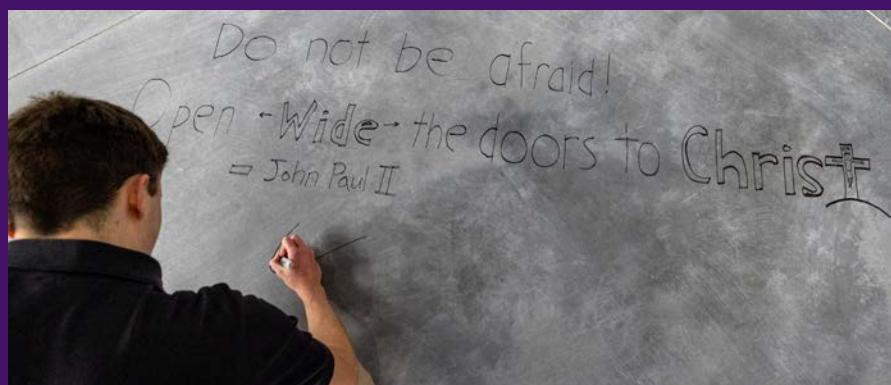 Do not be afraid!
Open ←Wide→ the doors to Christ
= John Paul II